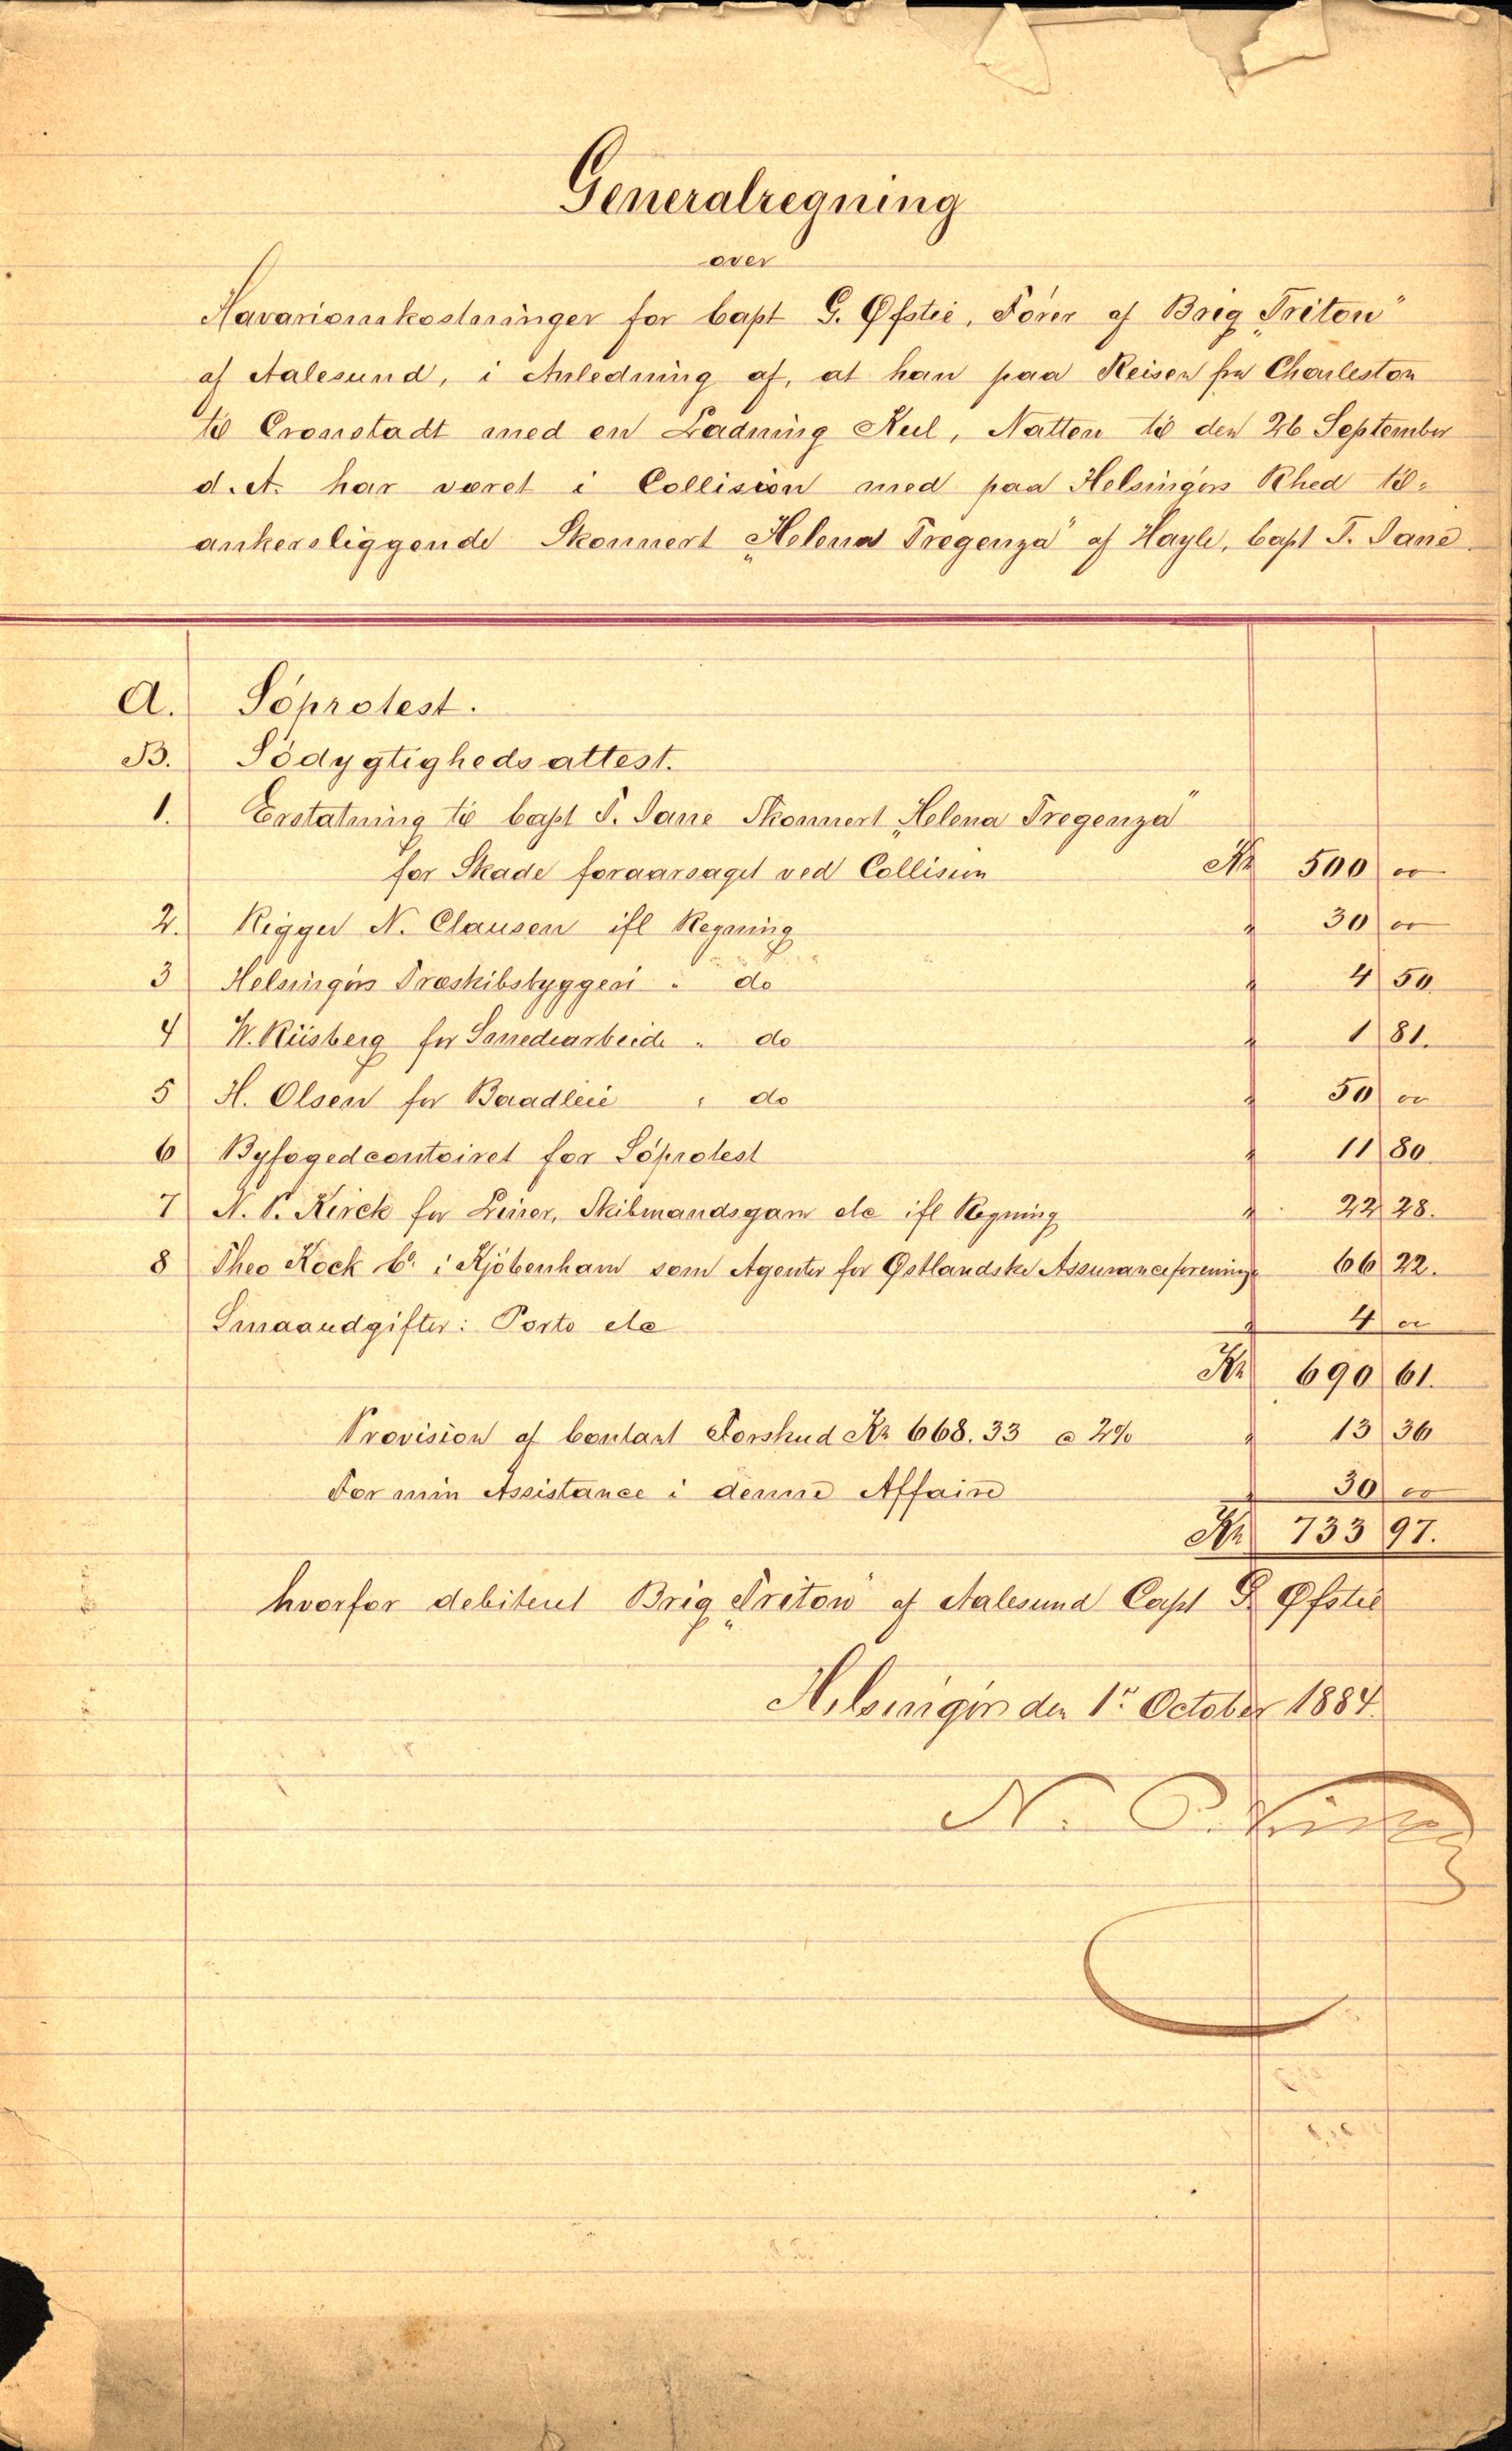 Generalregning
over
Havariomkostninger for Capt G. Øfstie, Fører af Brig „Triton"
af Aalesund, i Anledning af, at han paa Reisen fra Charleston
til Cronstadt med en Ladning Kul, Natten til den 26 September
d. A. har været i Collision med paa Helsingørs Rhed til-
ankersliggende Skonnert „Helena Tregenza" af Hayle, Capt T. Jane
A. Søprotest.
B. Södygtighedsattest.
1. Erstatning til Capt T. Jane Skonnert „Helena Tregenza"
for Skade foraarsaget ved Collision Kr 500 00
2. Rigger N. Clausen ifl Regning " 30 00
3 Helsingørs Træskibsbyggeri " do " 4 50
4 W. Riisberg for Smedearbeide " do " 1 81.
5 H. Olsen for Baadleie " do " 50 00
6 Byfogedcontoiret for Søprotest " 11 80
7 N. P. Kirck for Liner, Skibmandsgarn etc ifl Regning " 22 28.
8 Theo Kock Co. i Kjöbenhavn som Agenter for Østlandske Assuranceforening " 66 22.
Smaaudgifter: Porto etc " 4 00
Kr 690 61.
Provision af Contant Forskud Kr 668.33 a 2% " 13 36
For min Assistance i denne Affaire " 30 00
Kr 733 97.
hvorfor debiteret Brig „Triton" af Aalesund Capt G. Øfstie
Helsingør den 1ste October 1884.
N. P. Kirck